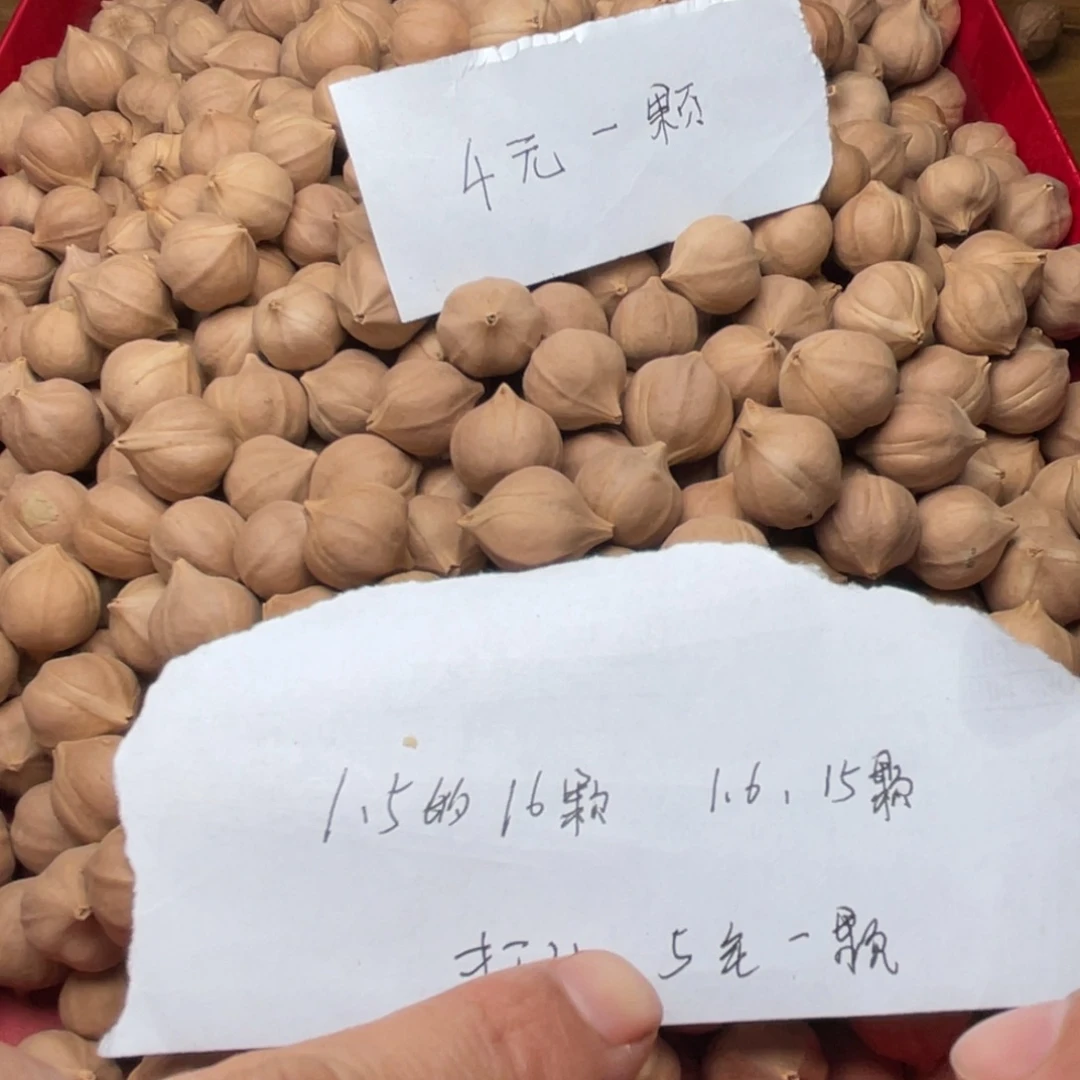 4元一颗
1.5的 16颗 1.6. 15颗
打 5毛一颗